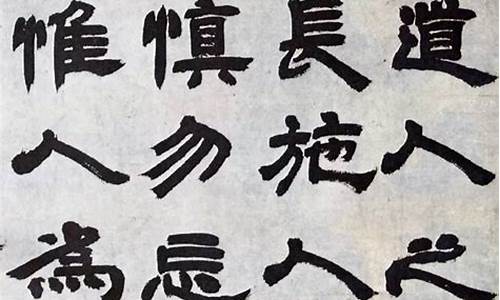 道人之
長施人
慎勿忘
惟人為